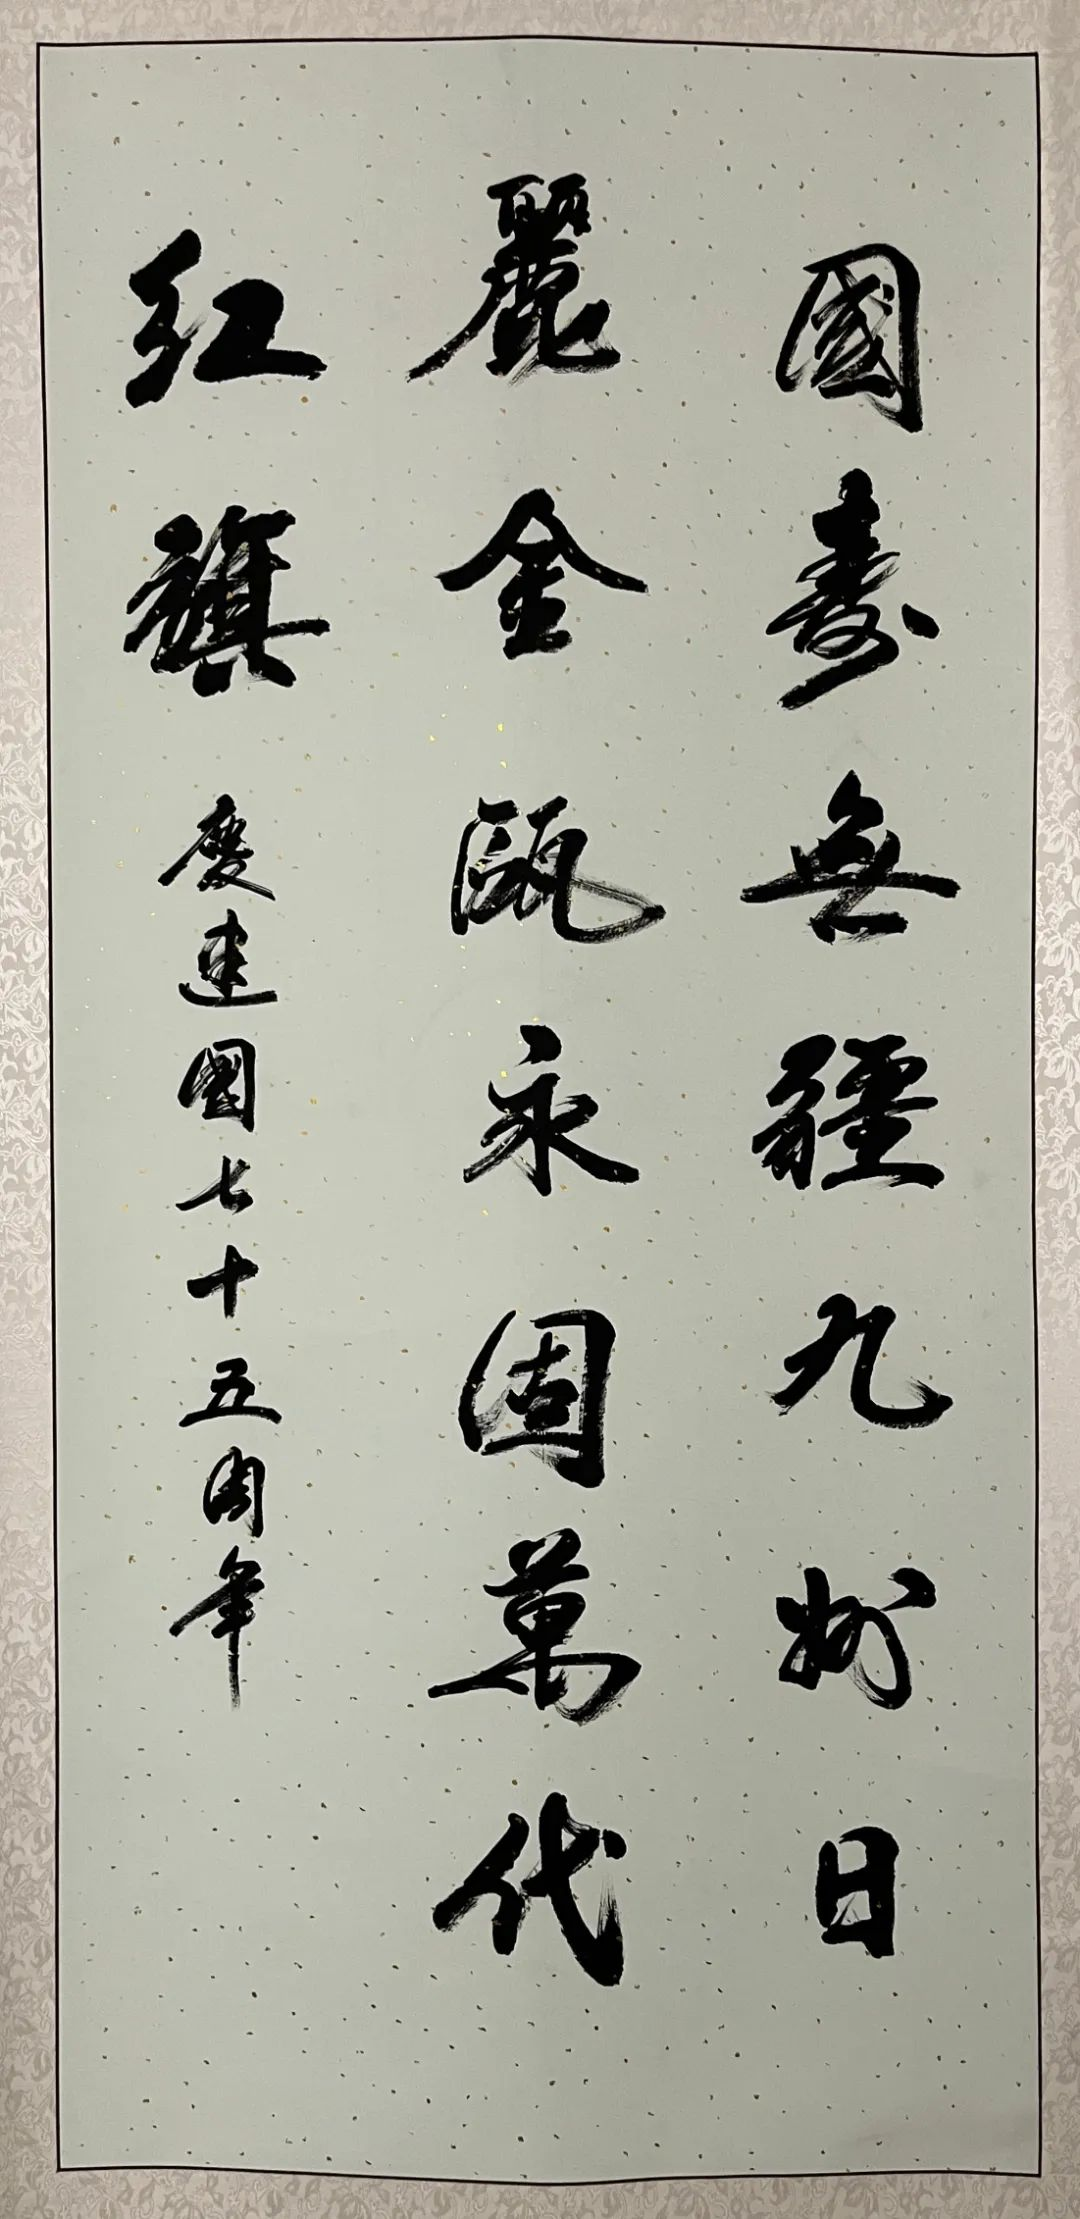 國壽無疆九州日
麗金甌永固萬代
紅旗 慶建國七十五周年